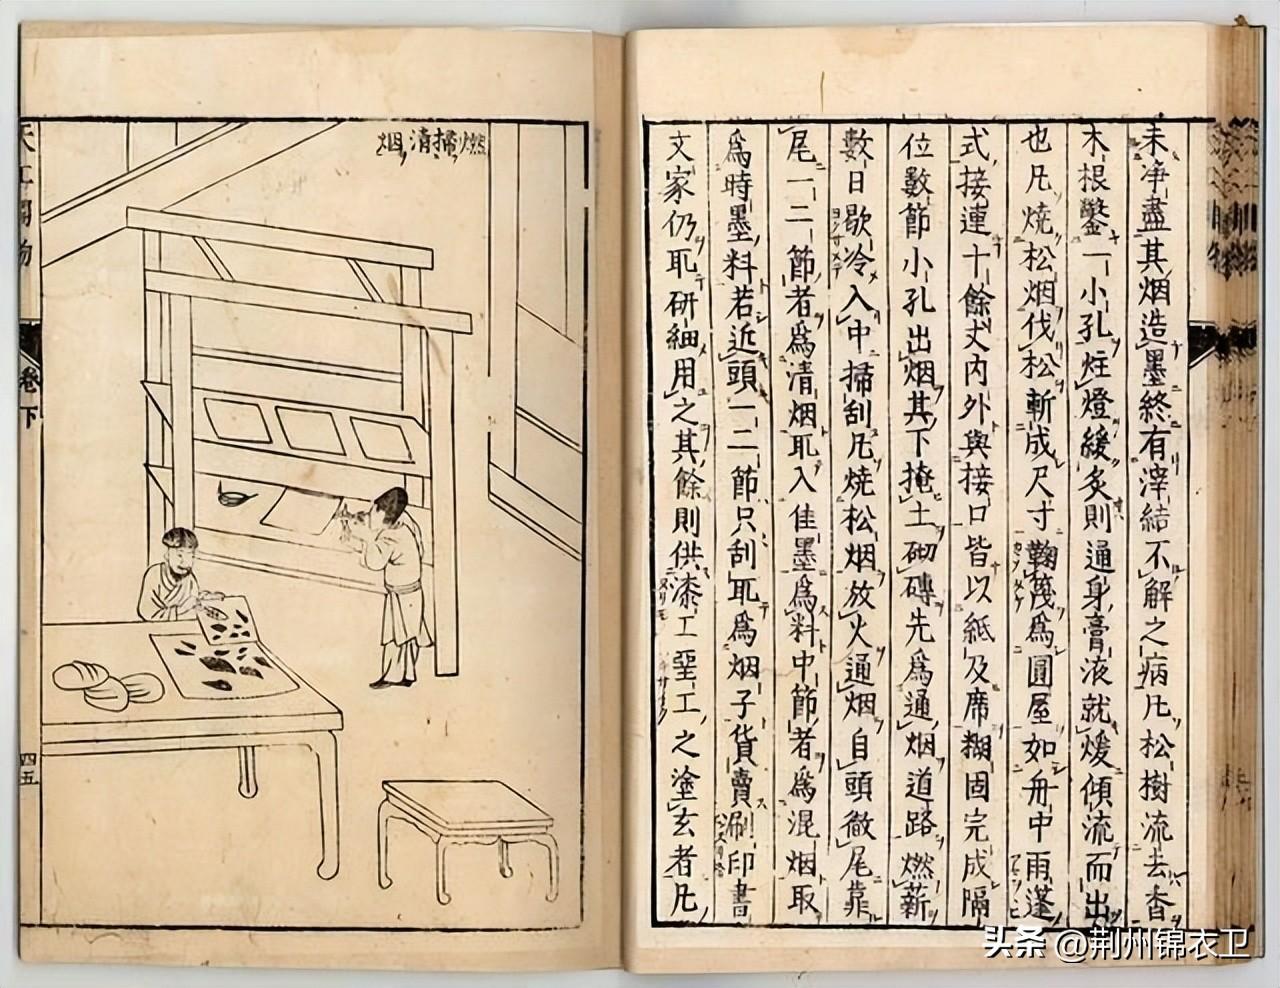 未净盡其烟造墨終有滓結不解之病凡松樹流去香
木根鑿一小孔炷燈緩炙則通身膏液就煖傾流而出
也凡燒松烟伐松斬成尺寸鞠篾爲圓屋如舟中雨篷
式接連十餘丈内外與接口皆以紙及席糊固完成隔
位數節小孔出烟其下掩土砌磚先爲通烟道路燃薪
數日歇冷入中掃刮凡燒松烟放火通烟自頭徹尾靠
尾一二節者爲清烟耴入佳墨爲料中節者爲混烟取
爲時墨料若近頭一二節只刮耴爲烟子貨賣刷印書
文家仍耴研細用之其餘則供漆工堊工之塗玄者凡
燃掃清烟
天工開物
卷下
四五
头条 @荆州锦衣卫